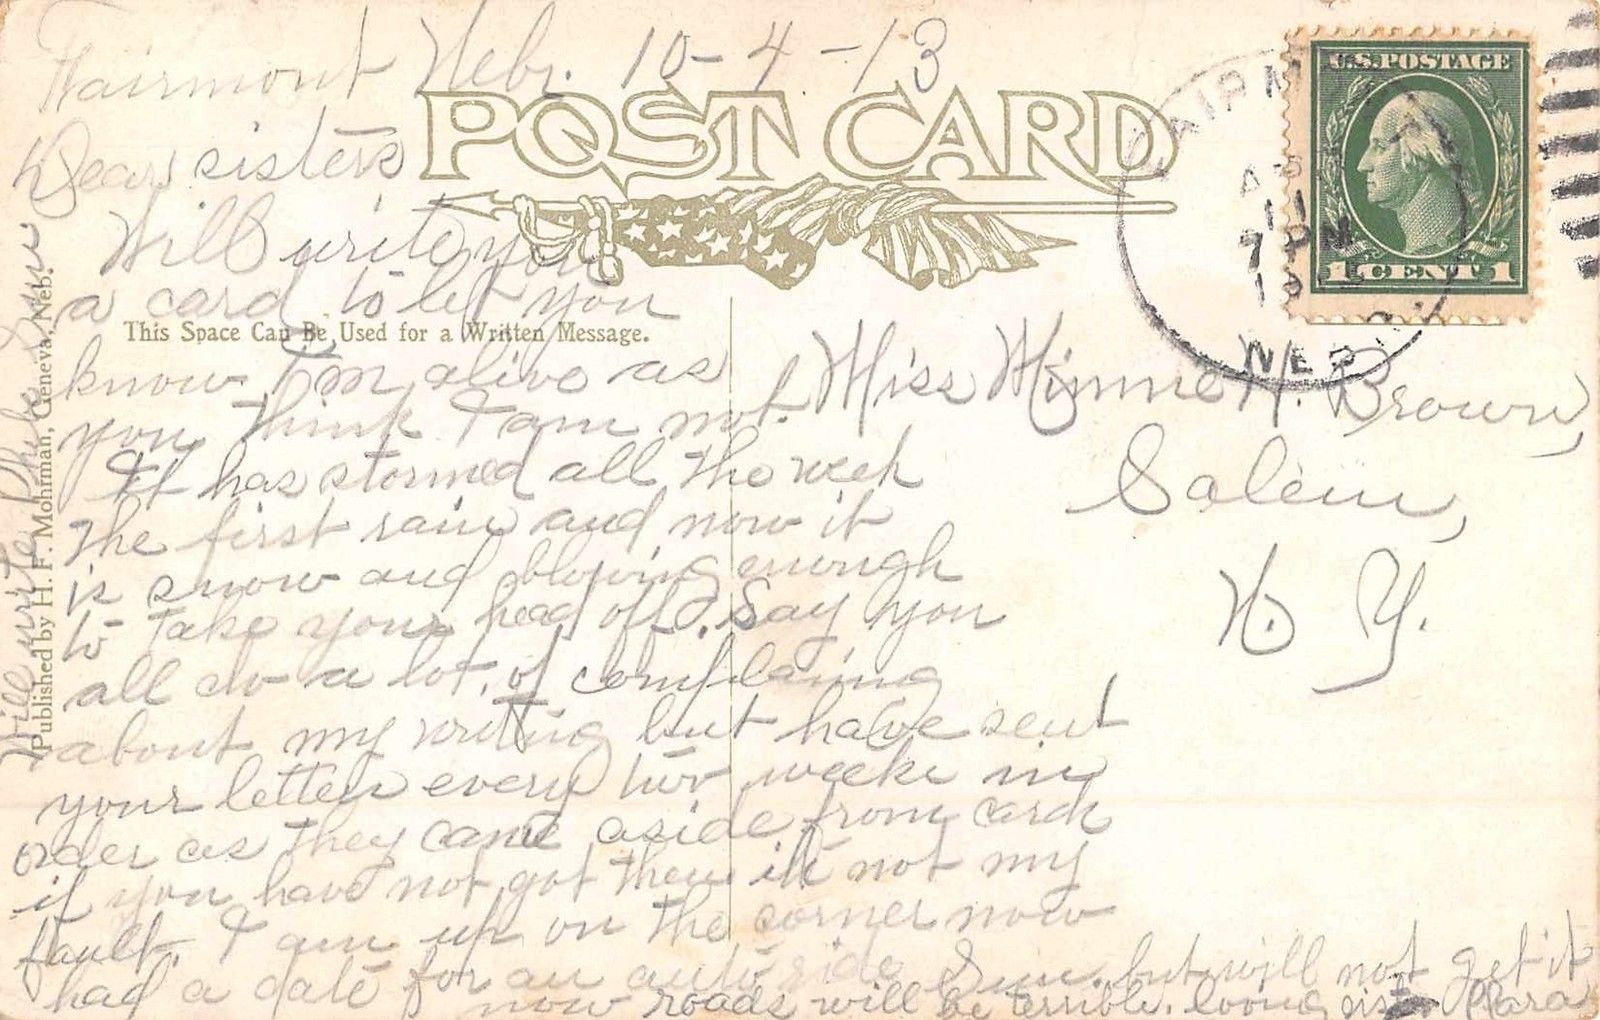 Fairmont Nebr. 10-4-13
POST CARD
U.S. POSTAGE
1 CENT 1
FAIRM
7 PM
NEB
Dear sisters
Will write you
a card to let you
This Space Can Be Used for a Written Message.
know I'm alive as
you think I am not.
It has stormed all the week
the first rain and now it
is snow and blowing enough
to take your head off. Say you
all do a lot of complaining
about my writing but have sent
your letter every two weeks in
order as they came aside from cards
if you have not got them its not my
fault. I am up on the corner now
had a date for an auto ride Sun. but will not get it
now roads will be terrible. loving sister Clara
Miss Minnie H. Brown,
Salem,
N. Y.
Will write Phebe Sun
Published by H. F. Mohrman, Geneva, Neb.